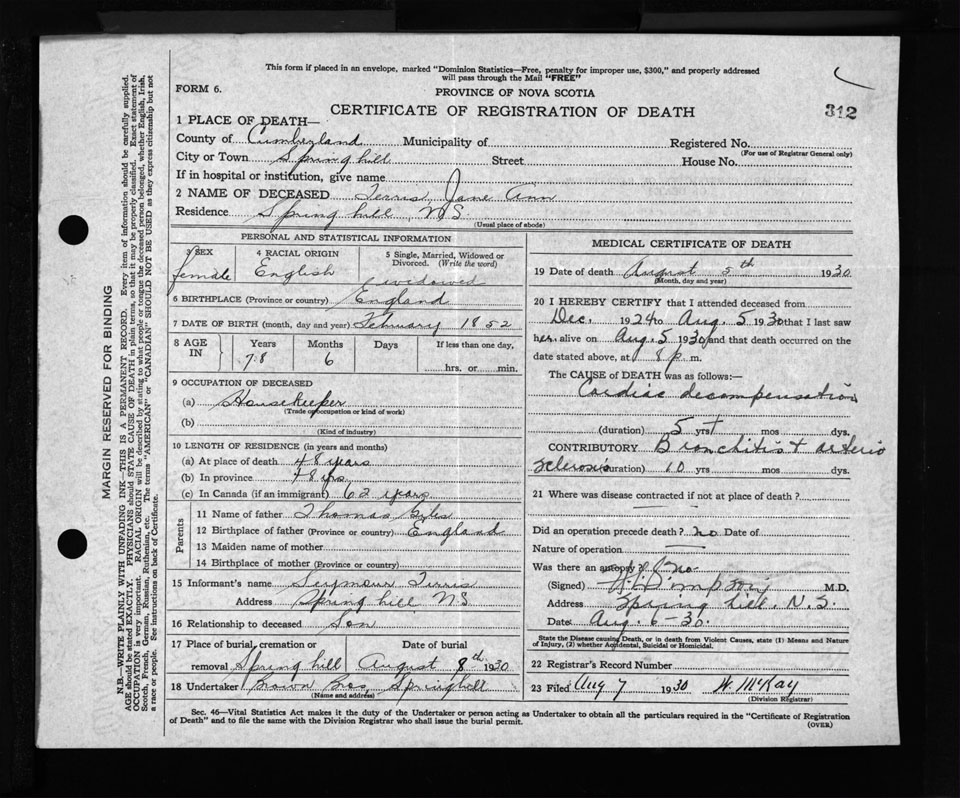 This form if placed in an envelope, marked "Dominion Statistics—Free, penalty for improper use, $300," and properly addressed
will pass through the Mail "FREE"
FORM 6.
PROVINCE OF NOVA SCOTIA
CERTIFICATE OF REGISTRATION OF DEATH
312
1 PLACE OF DEATH—
County of Cumberland Municipality of Registered No.
(For use of Registrar General only)
City or Town Spring hill Street House No.
If in hospital or institution, give name
2 NAME OF DECEASED Terris, Jane Ann
Residence Spring hill, N S
(Usual place of abode)
PERSONAL AND STATISTICAL INFORMATION
3 SEX
female
4 RACIAL ORIGIN
English
5 Single, Married, Widowed or
Divorced. (Write the word)
widowed
6 BIRTHPLACE (Province or country) England
7 DATE OF BIRTH (month, day and year) February 1852
8 AGE
IN
Years Months Days If less than one day,
78 6 hrs. or min.
9 OCCUPATION OF DECEASED
(a) Housekeeper
(Trade or occupation or kind of work)
(b)
(Kind of industry)
10 LENGTH OF RESIDENCE (in years and months)
(a) At place of death 48 years
(b) In province 48 yrs
(c) In Canada (if an immigrant) 62 years
Parents
11 Name of father Thomas Gyles
12 Birthplace of father (Province or country) England
13 Maiden name of mother
14 Birthplace of mother (Province or country)
15 Informant's name Seymour Terris
Address Spring hill NS
16 Relationship to deceased Son
17 Place of burial, cremation or Date of burial
removal Spring hill August 8th 1930
18 Undertaker Brown Bros, Springhill
(Name and address)
MEDICAL CERTIFICATE OF DEATH
19 Date of death August 5th 1930
(Month, day and year)
20 I HEREBY CERTIFY that I attended deceased from
Dec. 1924 to Aug. 5 1930 that I last saw
her alive on Aug. 5 1930 and that death occurred on the
date stated above, at 8 p. m.
The CAUSE of DEATH was as follows:—
Cardiac decompensation
(duration) 5 yrs + mos dys.
CONTRIBUTORY Bronchitis & arterio
sclerosis (duration) 10 yrs mos dys.
21 Where was disease contracted if not at place of death?
Did an operation precede death? no Date of
Nature of operation
Was there an autopsy? no
(Signed) M.D.
Address Spring hill. N.S.
Date Aug. 6-30.
State the Disease causing Death, or in death from Violent Causes, state (1) Means and Nature
of Injury, (2) whether Accidental, Suicidal or Homicidal.
22 Registrar's Record Number
23 Filed Aug 7 1930 W. McKay
(Division Registrar)
Sec. 46—Vital Statistics Act makes it the duty of the Undertaker or person acting as Undertaker to obtain all the particulars required in the "Certificate of Registration
of Death" and to file the same with the Division Registrar who shall issue the burial permit.
(OVER)
MARGIN RESERVED FOR BINDING
N.B.—WRITE PLAINLY WITH UNFADING INK—THIS IS A PERMANENT RECORD. Every item of information should be carefully supplied.
AGE should be stated EXACTLY. PHYSICIANS should STATE CAUSE OF DEATH in plain terms, so that it may be properly classified. Exact statement of
OCCUPATION is very important. RACIAL ORIGIN will be described by stating to what people or tongue the deceased person belonged, whether English, Irish,
Scotch, French, German, Russian, Ruthenian, etc. The terms "AMERICAN" or "CANADIAN" SHOULD NOT BE USED as they express citizenship but not
a race or people. See instructions on back of Certificate.